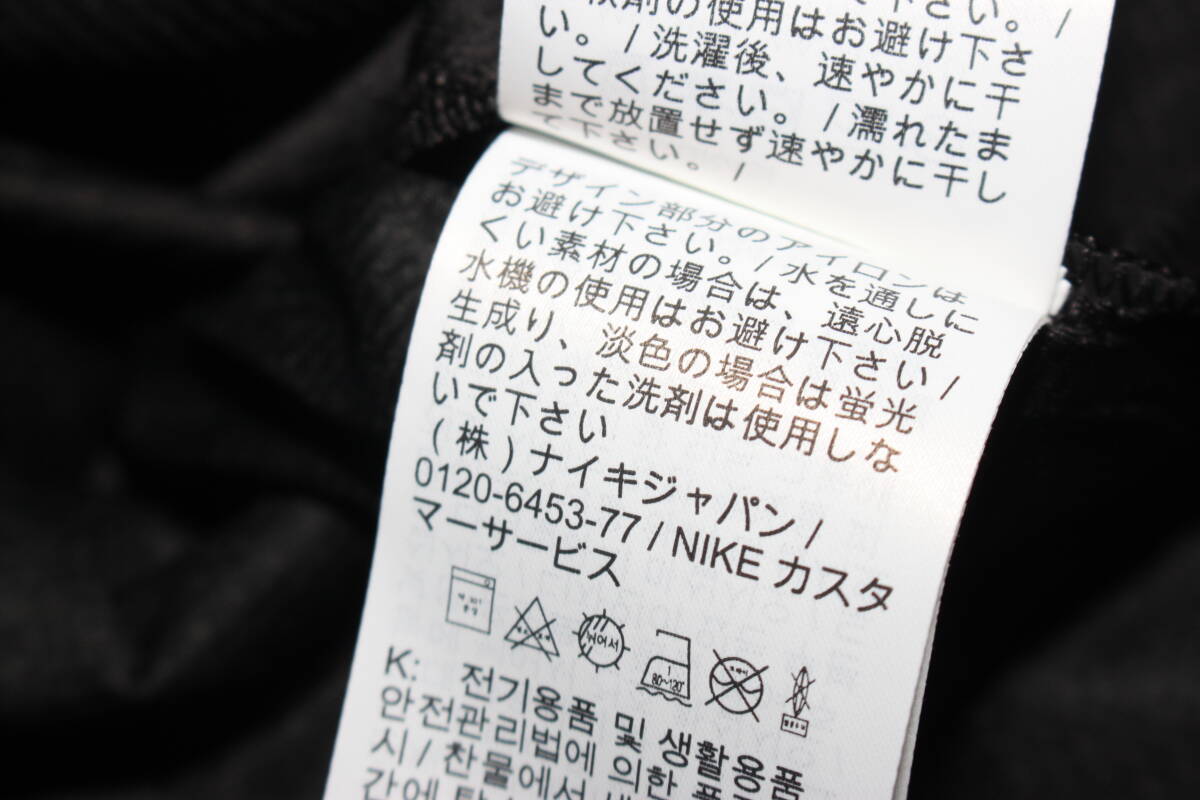 下さい。/
剤の使用はお避け下さ
い。/洗濯後、速やかに干
してください。/濡れたま
まで放置せず速やかに干し
て下さい。/
デザイン部分のアイロンは
お避け下さい。/水を通しに
くい素材の場合は、遠心脱
水機の使用はお避け下さい/
生成り、淡色の場合は蛍光
剤の入った洗剤は使用しな
いで下さい
(株)ナイキジャパン/
0120-6453-77/NIKE カスタ
マーサービス
뉘어서
80~120°
K: 전기용품 및 생활용품
안전관리법에 의한 품
시/찬물에서
간에